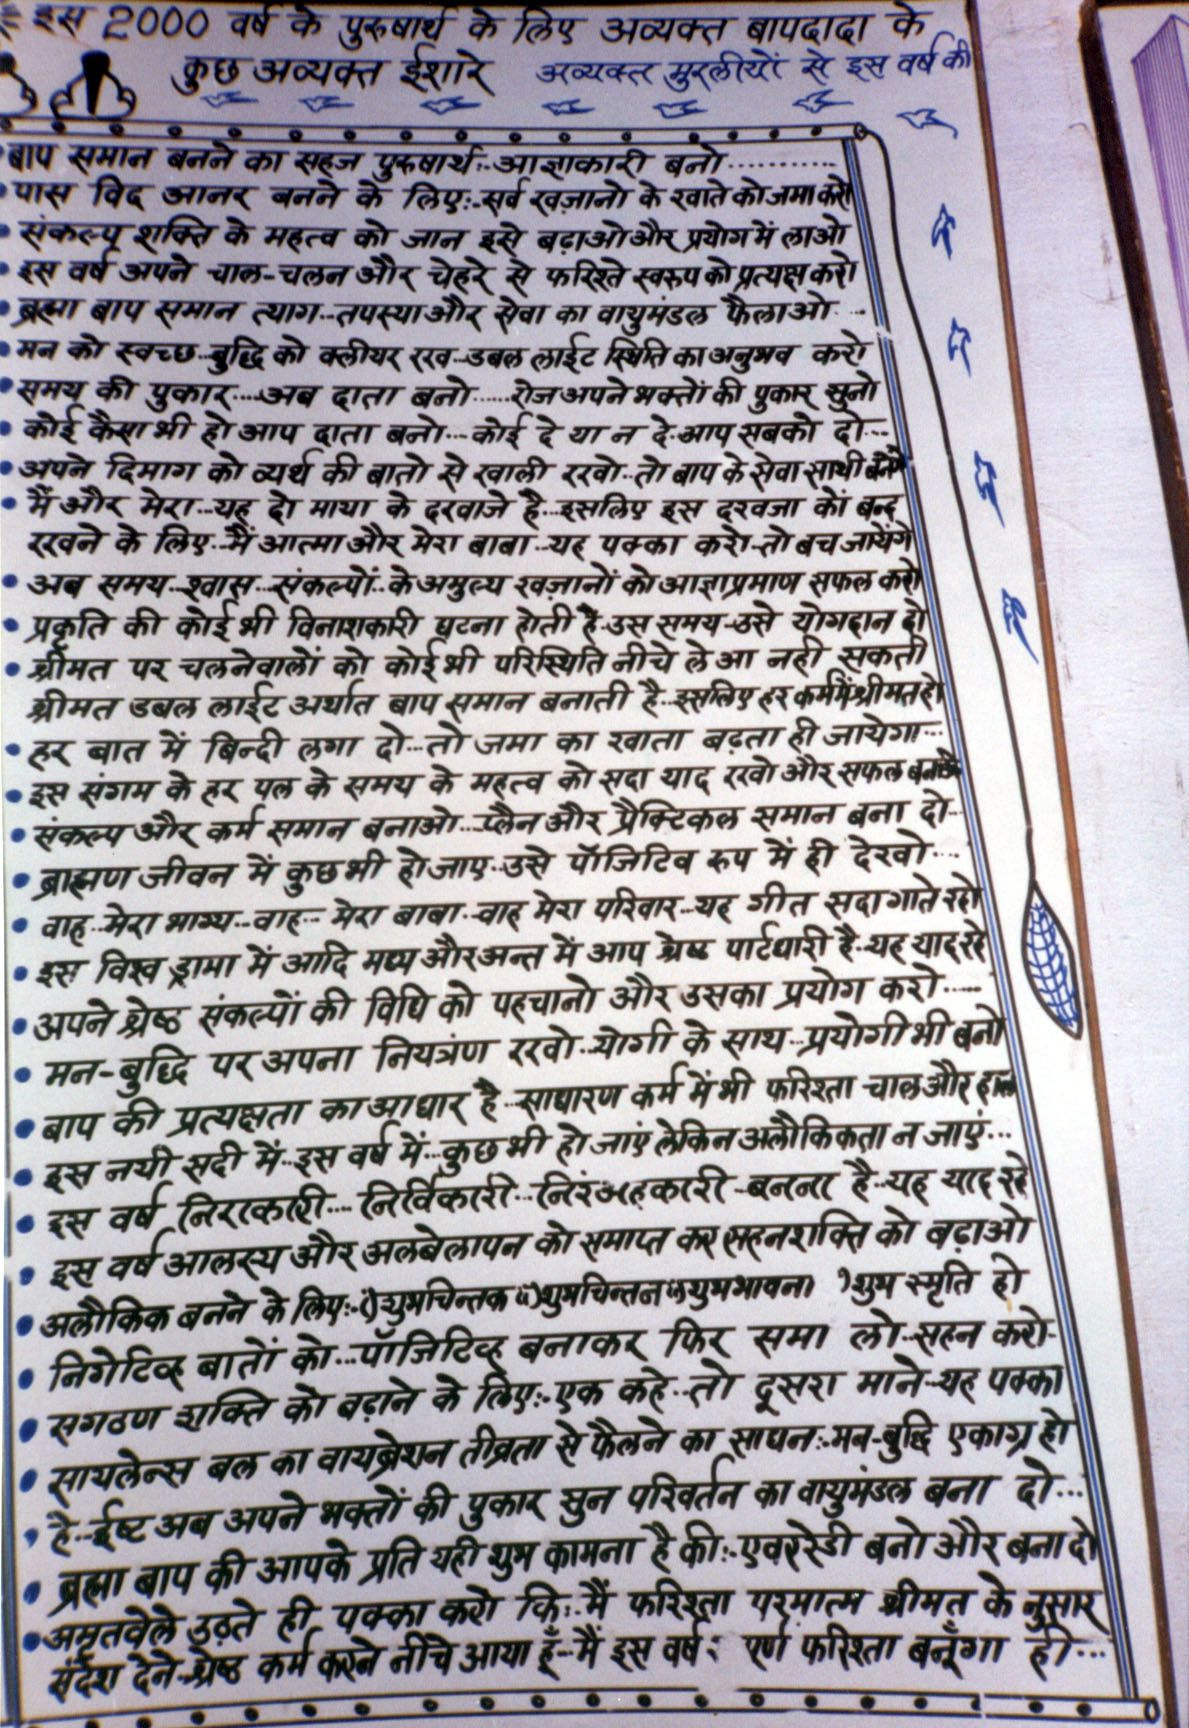 इस 2000 वर्ष के पुरुषार्थ के लिए अव्यक्त बापदादा के
कुछ अव्यक्त ईशारे अव्यक्त मुरलीयों से इस वर्ष की
बाप समान बनने का सहज पुरुषार्थ:-आज्ञाकारी बनो...........
• पास विद आनर बनने के लिए:-सर्व खज़ानो के खाते को जमा करो
• संकल्प शक्ति के महत्व को जान इसे बढ़ाओ और प्रयोग में लाओ
• इस वर्ष अपने चाल-चलन और चेहरे से फरिश्ते स्वरुप को प्रत्यक्ष करो
• ब्रह्मा बाप समान त्याग..तपस्या और सेवा का वायुमंडल फैलाओ...
• मन को स्वच्छ..बुद्धि को क्लीयर रख..डबल लाईट स्थिति का अनुभव करो
• समय की पुकार....अब दाता बनो.....रोज अपने भक्तों की पुकार सुनो
• कोई कैसा भी हो आप दाता बनो...कोई दे या न दे..आप सबको दो...
• अपने दिमाग को व्यर्थ की बातो से खाली रखो..तो बाप के सेवा साथी बनेंगे
• मैं और मेरा..यह दो माया के दरवाजे है..इसलिए इस दरवजा कों बन्द
रखने के लिए..मैं आत्मा और मेरा बाबा..यह पक्का करो..तो बच जायेंगे
• अब समय..श्वास..संकल्पों..के अमुल्य खज़ानों को आज्ञाप्रमाण सफल करो
• प्रकृति की कोई भी विनाशकारी घटना होती है..उस समय..उसे योगदान दो
• श्रीमत पर चलनेवालों को कोई भी परिस्थिति नीचे ले आ नही सकती
श्रीमत डबल लाईट अर्थात बाप समान बनाती है..इसलिए हर कर्म में श्रीमत हो
• हर बात में बिन्दी लगा दो...तो जमा का खाता बढ़ता ही जायेगा...
• इस संगम के हर पल के समय के महत्व को सदा याद रखो और सफल बनाओ
• संकल्प और कर्म समान बनाओ...प्लैन और प्रैक्टिकल समान बना दो...
• ब्राह्मण जीवन में कुछ भी हो जाए..उसे पॉजिटिव रुप में ही देखो....
• वाह..मेरा भाग्य...वाह... मेरा बाबा..वाह मेरा परिवार..यह गीत सदा गाते रहो
• इस विश्व ड्रामा में आदि मध्य और अन्त में आप श्रेष्ठ पार्टधारी है..यह याद रहे
• अपने श्रेष्ठ संकल्पों की विधि को पहचानो और उसका प्रयोग करो.....
• मन-बुद्धि पर अपना नियत्रंण रखो..योगी के साथ..प्रयोगी भी बनो
• बाप की प्रत्यक्षता का आधार है..साधारण कर्म में भी फरिश्ता चाल और हाल
• इस नयी सदी में..इस वर्ष में..कुछ भी हो जाएं लेकिन अलौकिकता न जाएं...
• इस वर्ष निराकारी....निर्विकारी..निरंअहकारी..बनना है..यह याद रहे
• इस वर्ष आलस्य और अलबेलापन को समाप्त कर सहनशक्ति को बढ़ाओ
• अलौकिक बनने के लिए:-।)शुभचिन्तक ॥)शुभचिन्तन शुभभावना )शुभ स्मृति हो
• निगेटिव्ह बातों को...पॉजिटिव्ह बनाकर फिर समा लो..सहन करो-
• सगठण शक्ति को बढ़ाने के लिए:-एक कहे..तो दूसरा माने-यह पक्का
• सायलेन्स बल का वायब्रेशन तीव्रता से फैलने का साधन:-मन-बुद्धि एकाग्र हो
• हे..ईष्ट अब अपने भक्तों की पुकार सुन परिवर्तन का वायुमंडल बना दो...
• ब्रह्मा बाप की आपके प्रति यही शुभ कामना है की:-एवररेडी बनो और बना दो
• अमृतवेले उठते ही पक्का करो कि:-मैं फरिश्ता परमात्म श्रीमत के नुसार
संदेश देने..श्रेष्ठ कर्म करने नीचे आया हूँ...मैं इस वर्ष र्ण फरिश्ता बनूँगा ही...